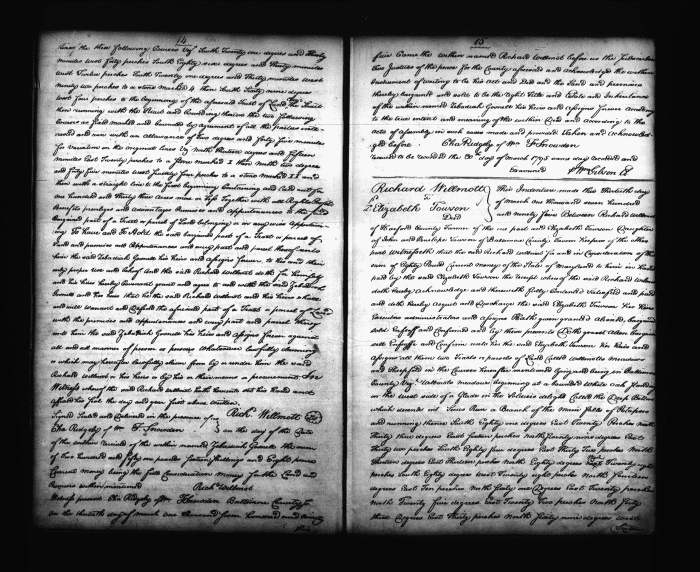 14
thence the three following Courses Viz South Twenty one degrees and thirty
minutes west forty perches South Eighty six degrees and Thirty minutes
west Twelve perches South Twenty one degrees and Thirty minutes west
ninety two perches to a stone marked 4 then South Sixty seven degrees
west four perches to the beginning of the aforesaid Tract of Land
then running with the Tract and bounding thereon the two following
Courses as first marked and bounded by agreement of all the parties
and now with an allowance of two degrees and forty five minutes
for Variation on the original lines Viz North thirteen degrees and fifteen
minutes East Twenty perches to a stone marked I then North two degrees
and forty five minutes west Twenty four perches to a stone marked II and
then with a straight line to the first beginning Containing and laid out for
one hundred and thirty three acres more or less Together with all Rights Profits
Benefits privileges and advantages hereditaments and appurtenances to the said
bargained part of a Tract or parcel of Land belonging or in any wise appertain-
ing To Have and To Hold the said bargained part of a Tract or parcel of
Land and premises all appurtenances and every part and parcel thereof unto
him the said Zebediah his Heirs and Assigns forever to his and their
only proper use and behoof and the said Richard Willmott doth for himself
and his heirs hereby Covenant grant and agree to and with the said Zebediah
and his heirs that he the said Richard Willmott and his Heirs shall
and will warrant and Defend the aforesaid part of a Tract or parcel of Land
with the premises and appurtenances and every part and parcel thereof
unto him the said Zebediah his Heirs and Assigns forever against
all and all manner of person or persons Whatsoever lawfully claiming
or which may hereafter lawfully claim from by or under him the said
Richard Willmott or his heirs or by his or their means or procurement In
Witness whereof the said Richard Willmott hath hereunto set his Hand and
affixed his seal the day and year first above written
Signed Sealed and Delivered in the presence of Richd. Willmott
Cha Ridgely of Wm F. Snowden on the day of the Date
of the within received of the within named Zebediah the sum
of Two hundred and fifty six pounds sixteen shillings and Eight pence
Current money being the full Consideration money for the Land and
premises within mentioned Richd Willmott
Witness present Cha Ridgely Wm F. Snowden Baltimore County Ss
on the thirtieth day of march one thousand seven hundred and ninety
15
five Came the within named Richard Willmott before us the Subscribers
two Justices of the peace for the County aforesaid and acknowledged the within
Instrument of writing to be his act and Deed and the Land and premises
thereby bargained and sold to be the right Title and Estate and Inheritance
of the within named Zebediah his Heirs and Assigns forever According
to the true intent and meaning of the within Deed and according to the
acts of assembly in such cases made and provided Taken and acknowledg-
ed before Cha Ridgely of Wm F. Snowden
Received to be recorded the day of March 1795 same day recorded and
Examined Wm Gibson Clk
Richard Willmott
To
Elizabeth Towson
Deed
This Indenture made this Thirtieth day
of March one thousand seven hundred
and ninety five Between Richard Willmott
of Harford County Farmer of the one part and Elizabeth Towson Daughter
of John and Penelope Towson of Baltimore County Tavern Keeper of the other
part Witnesseth that the said Richard Willmott for and in Consideration of the
sum of Eighty Pounds Current money of the State of Maryland to him in hand
paid by the said Elizabeth Towson the receipt whereof the said Richard Willmott
doth hereby Acknowledge and himself fully Contented Satisfied and paid
and doth hereby acquit and Discharge the said Elizabeth Towson her Heirs
Executors administrators and assigns Hath given granted aliened bargained
sold Enfeoff and Confirmed and by these presents Doth grant alien bargain
sell Enfeoffe and Confirm unto her the said Elizabeth Towson her Heirs and
Assigns all them two Tracts or parcels of Land Called Willmotts Meadows
and in the Courses hereafter mentioned lying and being in Baltimore
County Viz. Willmotts meadows beginning at a bounded White oak standing
on the west side of a Glade in the delight Called the Deep Bottom
which descends into Towns Run a Branch of the Main falls of Patapsco
and running thence South Eighty one degrees East Twenty Perches North
Thirty three degrees East Sixteen perches North Seventy nine degrees East
Thirty two perches South Eighty four degrees East Thirty Two perches North
Thirteen degrees East Thirteen perches North Eighty degrees East Twenty eight
perches South Eighty degrees west Twenty eight perches North Fourteen
degrees East Ten perches North Sixty one degrees East Twenty perches
North Twenty five degrees East Twenty Two perches North Fifty
three degrees East Thirty perches North Sixty nine degrees West